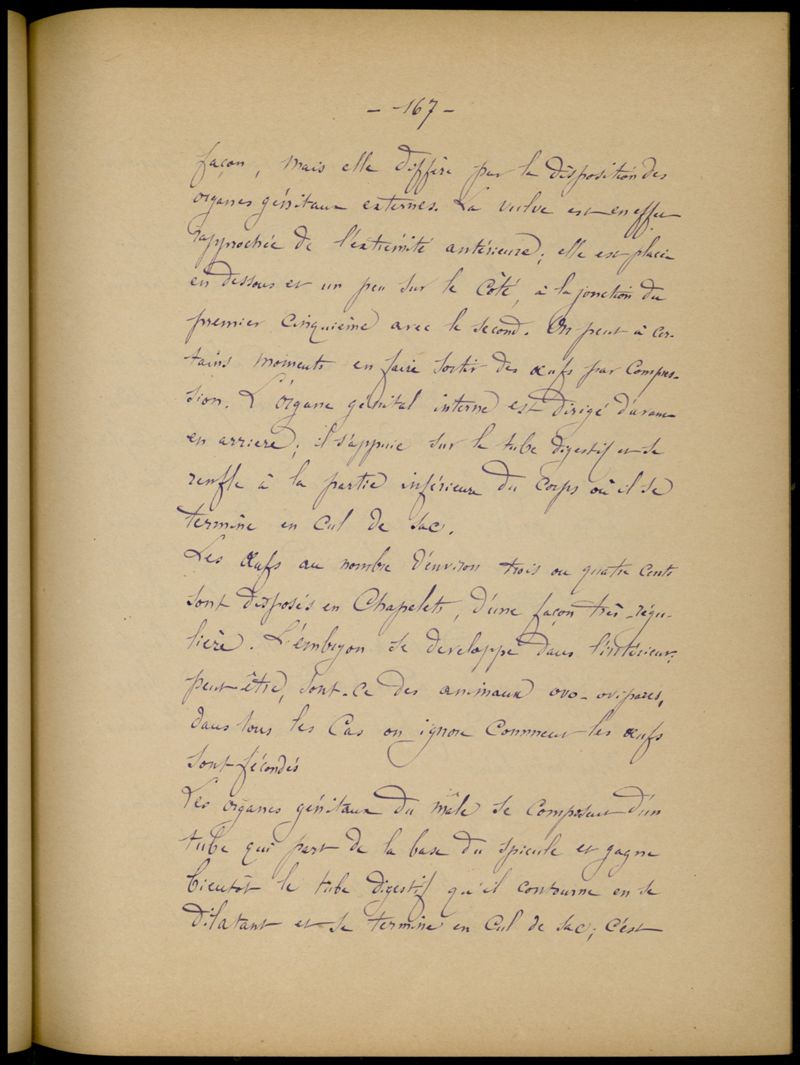 - 167 -
façon, mais elle diffère par la disposition des
organes génitaux externes. La vulve est en effet
rapprochée de l'extrémité antérieure; elle est placée
en dessous et un peu sur le côté, à la jonction du
premier cinquième avec le second. On peut à cer-
tains moments en faire sortir des œufs par compres-
sion. L'organe génital interne est dirigé d'avant
en arrière; il s'appuie sur le tube digestif et se
renfle à la partie inférieure du corps où il se
termine en cul de sac.
Les œufs au nombre d'environ trois ou quatre cents
sont disposés en chapelets, d'une façon très-régu-
lière. L'embryon se developpe dans l'intérieur;
peut-être, sont-ce des animaux ovo-vipares,
dans tous les cas on ignore comment les œufs
sont fécondés
Les organes génitaux du mâle se composent d'un
tube qui part de la base du spicule et gagne
bientôt le tube digestif qu'il contourne en se
dilatant et se termine en cul de sac; c'est